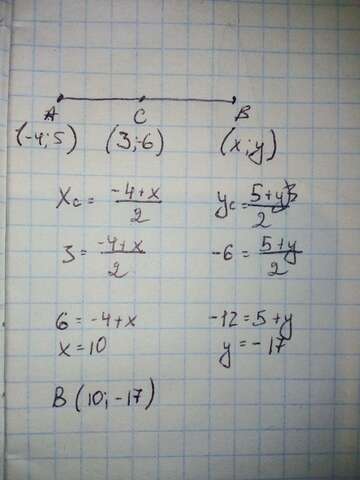 A C B
(-4;5) (3;-6) (x;y)
Xc = (-4+x)/2 yc = (5+y)/2
3 = (-4+x)/2 -6 = (5+y)/2
6 = -4+x -12 = 5+y
x = 10 y = -17
B (10; -17)